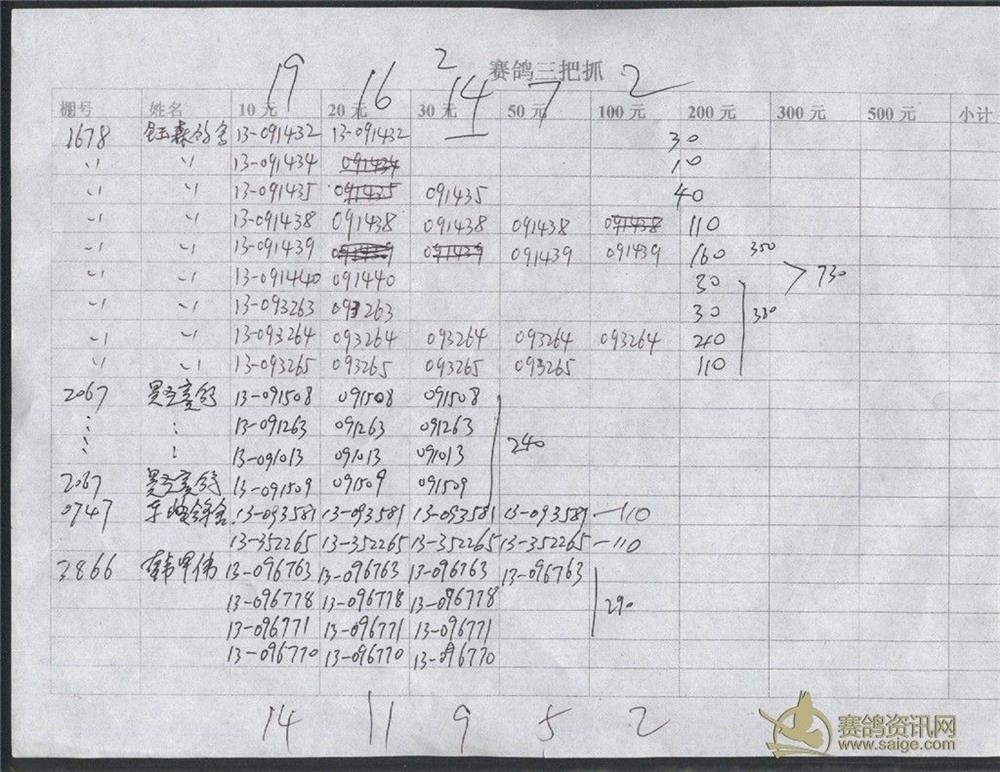 19 16 2 14 7 2
赛鸽三把抓
棚号 姓名 10元 20元 30元 50元 100元 200元 300元 500元 小计
1678 13-091432 13-091432 30
〃 〃 13-091434 091434 10
〃 〃 13-091435 091435 091435 40
〃 〃 13-091438 091438 091438 091438 091438 110
〃 〃 13-091439 091439 091439 091439 091439 160 350
〃 〃 13-091440 091440 30 730
〃 〃 13-093263 093263 30 380
〃 〃 13-093264 093264 093264 093264 093264 210
〃 〃 13-093265 093265 093265 093265 110
2067 13-091508 091508 091508
13-091263 091263 091263
13-091013 091013 091013 240
2067 13-091509 091509 091509
0747 13-093581 13-093581 13-093581 13-093581 —110
13-352265 13-352265 13-352265 13-352265 —110
3866 韩甲伟 13-096763 13-096763 13-096763 13-096763
13-096778 13-096778 13-096778 290
13-096771 13-096771 13-096771
13-096770 13-096770 13-096770
14 11 9 5 2
赛鸽资讯网
www.saige.com